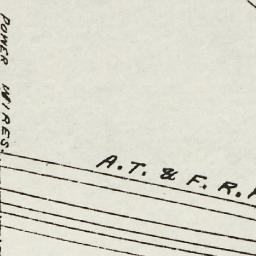 POWER WIRES.
A. T. & F. R.